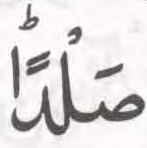 صَلْدًاؕ